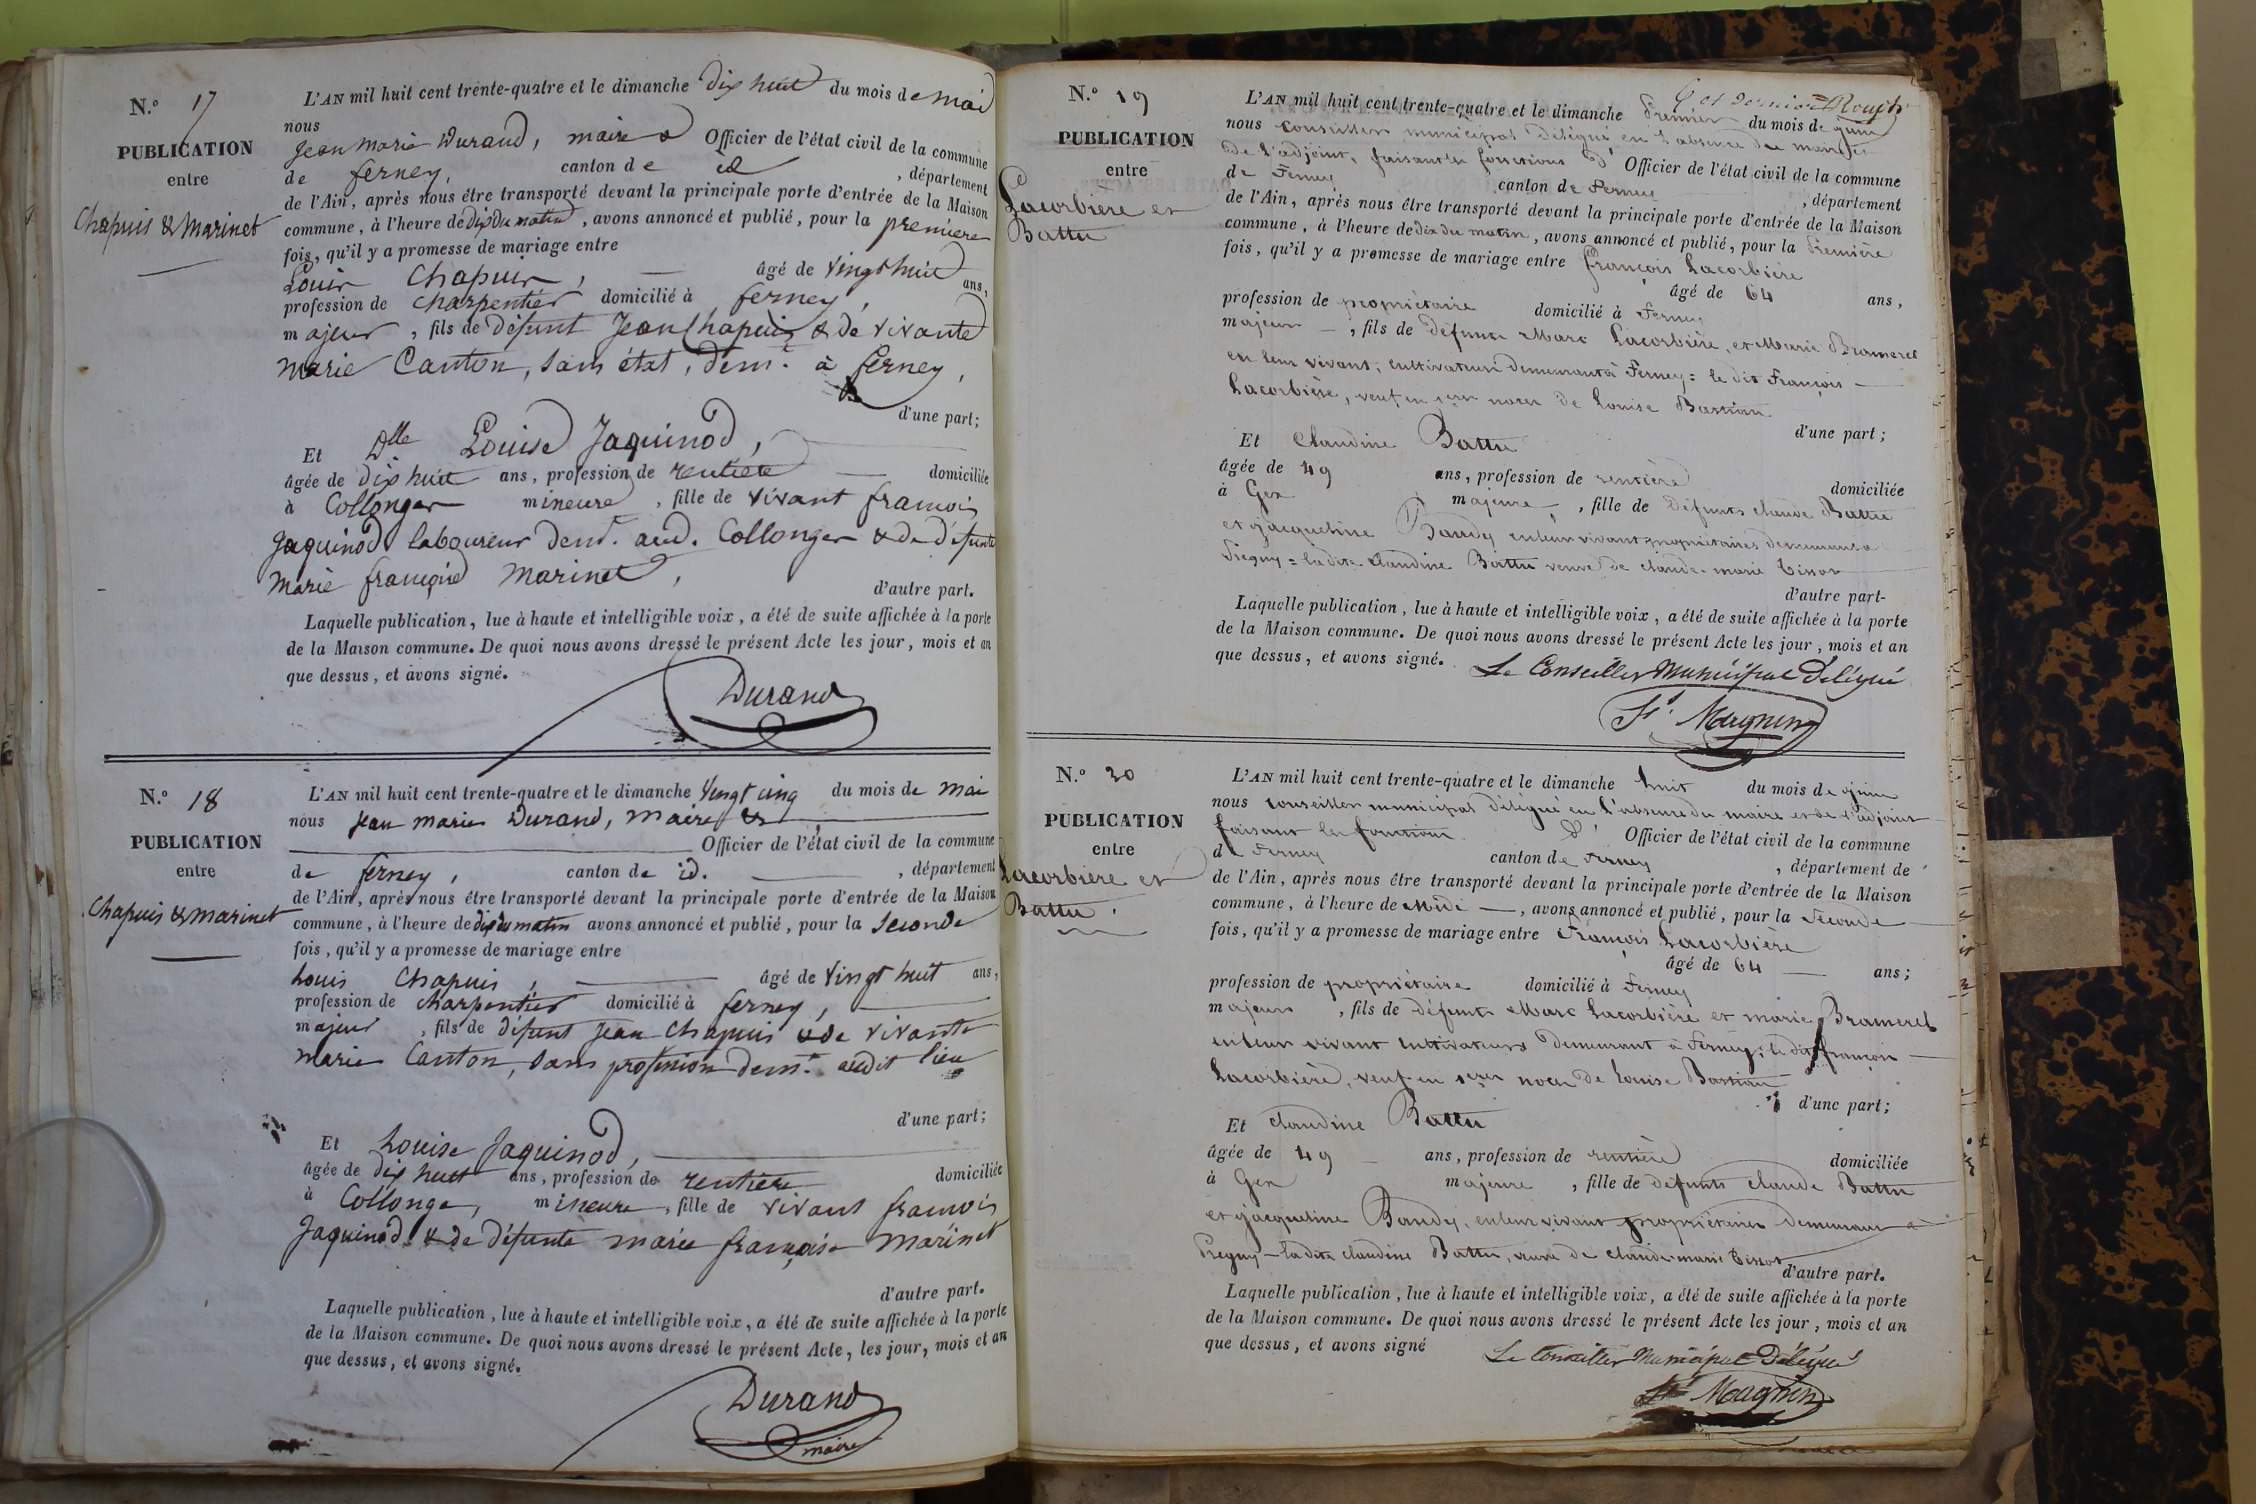 N.º 17
PUBLICATION
entre
Chapuis & Marinet
L'AN mil huit cent trente-quatre et le dimanche dix huit du mois de mai
nous
Jean Marie Durand, maire & Officier de l'état civil de la commune
de ferney, canton de id , département
de l'Ain, après nous être transporté devant la principale porte d'entrée de la Maison
commune, à l'heure de dix du matin, avons annoncé et publié, pour la première
fois, qu'il y a promesse de mariage entre
Louis Chapuis, âgé de vingt huit ans,
profession de charpentier domicilié à ferney,
majeur, fils de défunt Jean Chapuis & de vivante
marie Canton, sans état, demt. à ferney,
d'une part;
Et Dlle Louise Jaquinod,
âgée de dix huit ans, profession de rentiere domiciliée
à Collonges mineure, fille de vivant francois
Jaquinod laboureur demt. aud. Collonges & de défunte
Marie françoise Marinet,
d'autre part.
Laquelle publication, lue à haute et intelligible voix, a été de suite affichée à la porte
de la Maison commune. De quoi nous avons dressé le présent Acte les jour, mois et an
que dessus, et avons signé.
Durand
N.º 18
PUBLICATION
entre
Chapuis & marinet
L'AN mil huit cent trente-quatre et le dimanche vingt cinq du mois de mai
nous Jean marie Durand, maire &
Officier de l'état civil de la commune
de ferney, canton de id. , département
de l'Ain, après nous être transporté devant la principale porte d'entrée de la Maison
commune, à l'heure de dix du matin avons annoncé et publié, pour la seconde
fois, qu'il y a promesse de mariage entre
Louis Chapuis, âgé de vingt huit ans,
profession de charpentier domicilié à ferney,
majeur, fils de défunt Jean Chapuis & de vivante
marie Canton, sans profession demt. audit lieu
d'une part;
Et Louise Jaquinod,
âgée de dix huit ans, profession de rentière domiciliée
à Collonge, mineure, fille de vivant francois
Jaquinod & de défunte marie françoise Marinet
d'autre part.
Laquelle publication, lue à haute et intelligible voix, a été de suite affichée à la porte
de la Maison commune. De quoi nous avons dressé le présent Acte, les jour, mois et an
que dessus, et avons signé.
Durand
maire
N.º 19
PUBLICATION
entre
Lacorbière et
Battu
L'AN mil huit cent trente-quatre et le dimanche Premier du mois de juin
nous conseiller municipal délégué en l'absence du maire et
de l'adjoint, faisant les fonctions d' Officier de l'état civil de la commune
de Ferney canton de Ferney , département
de l'Ain, après nous être transporté devant la principale porte d'entrée de la Maison
commune, à l'heure de dix du matin, avons annoncé et publié, pour la Première
fois, qu'il y a promesse de mariage entre françois Lacorbière
âgé de 64 ans,
profession de propriétaire domicilié à Ferney
majeur, fils de défunts Marc Lacorbière, et Marie Brameret
en leur vivant, cultivateurs demeurant à Ferney = le dit François
Lacorbière, veuf en 1eres noces de Louise Bastian
d'une part;
Et Claudine Battu
âgée de 49 ans, profession de rentière domiciliée
à Gex majeure, fille de défunts claude Battu
et jacqueline Baudy en leur vivant propriétaires demeurant à
Pregny = la dite Claudine Battu veuve de claude-marie Tissot
d'autre part-
Laquelle publication, lue à haute et intelligible voix, a été de suite affichée à la porte
de la Maison commune. De quoi nous avons dressé le présent Acte les jour, mois et an
que dessus, et avons signé. Le Conseiller Municipal Délégué
Magnin
N.º 20
PUBLICATION
entre
Lacorbière et
Battu.
L'AN mil huit cent trente-quatre et le dimanche huit du mois de juin
nous conseiller municipal délégué en l'absence du maire et de l'adjoint
faisant les fonctions d' Officier de l'état civil de la commune
de Ferney canton de Ferney , département de
de l'Ain, après nous être transporté devant la principale porte d'entrée de la Maison
commune, à l'heure de Midi, avons annoncé et publié, pour la seconde
fois, qu'il y a promesse de mariage entre François Lacorbière
âgé de 64 ans;
profession de propriétaire domicilié à Ferney
majeur, fils de défunts Marc Lacorbière et marie Brameret
en leur vivant cultivateurs demeurant à Ferney; le dit françois
Lacorbière, veuf en 1eres noces de Louise Bastian
d'une part;
Et Claudine Battu
âgée de 49 ans, profession de rentière domiciliée
à Gex majeure, fille de défunts claude Battu
et jacqueline Baudy, en leur vivant propriétaires demeurant à
Pregny - la dite claudine Battu, veuve de claude-marie Tissot
d'autre part.
Laquelle publication, lue à haute et intelligible voix, a été de suite affichée à la porte
de la Maison commune. De quoi nous avons dressé le présent Acte les jour, mois et an
que dessus, et avons signé
Le Conseiller Municipal Délégué
Magnin